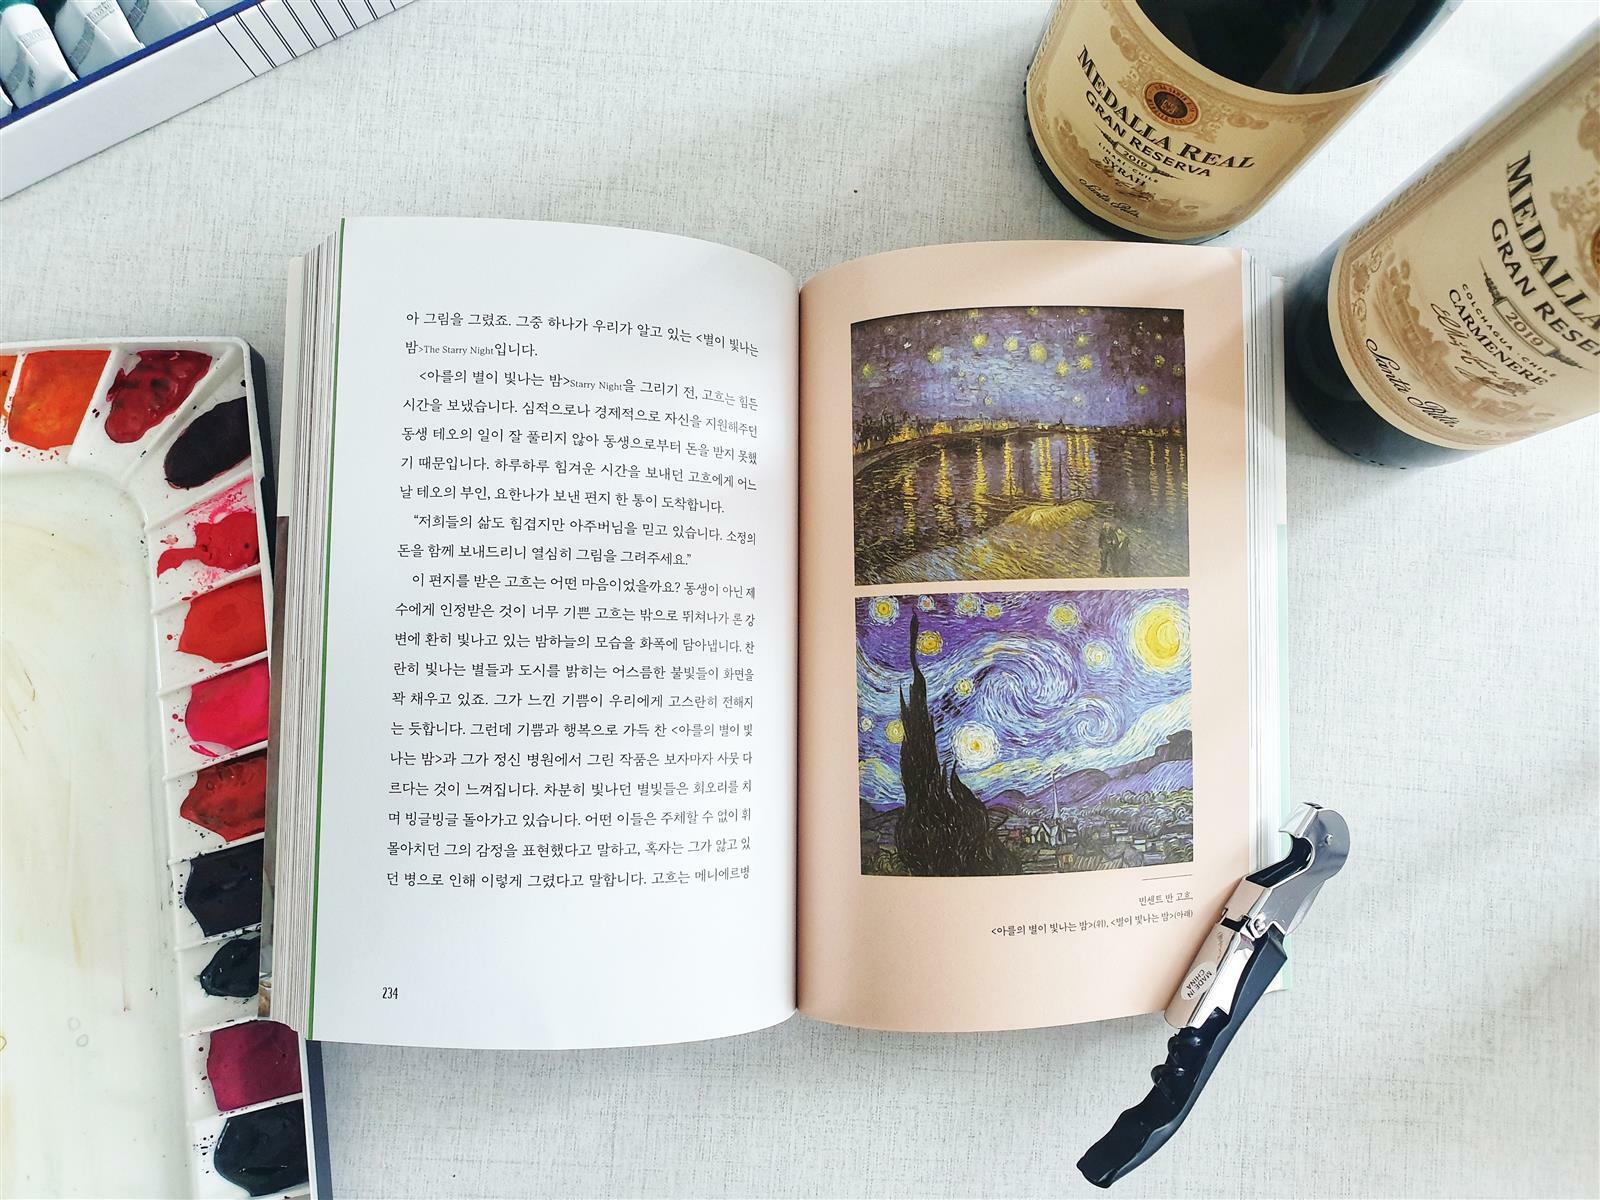 MEDALLA REAL
GRAN RESERVA
2019
LIMARI · CHILE
SYRAH
Santa Rita
MEDALLA
GRAN RESE
COLCHAGUA · CHILE
2019
CARMENERE
Santa Rita
아 그림을 그렸죠. 그중 하나가 우리가 알고 있는 <별이 빛나는
밤>The Starry Night입니다.
<아를의 별이 빛나는 밤>Starry Night을 그리기 전, 고흐는 힘든
시간을 보냈습니다. 심적으로나 경제적으로 자신을 지원해주던
동생 테오의 일이 잘 풀리지 않아 동생으로부터 돈을 받지 못했
기 때문입니다. 하루하루 힘겨운 시간을 보내던 고흐에게 어느
날 테오의 부인, 요한나가 보낸 편지 한 통이 도착합니다.
“저희들의 삶도 힘겹지만 아주버님을 믿고 있습니다. 소정의
돈을 함께 보내드리니 열심히 그림을 그려주세요.”
이 편지를 받은 고흐는 어떤 마음이었을까요? 동생이 아닌 제
수에게 인정받은 것이 너무 기쁜 고흐는 밖으로 뛰쳐나가 론 강
변에 환히 빛나고 있는 밤하늘의 모습을 화폭에 담아냅니다. 찬
란히 빛나는 별들과 도시를 밝히는 어스름한 불빛들이 화면을
꽉 채우고 있죠. 그가 느낀 기쁨이 우리에게 고스란히 전해지
는 듯합니다. 그런데 기쁨과 행복으로 가득 찬 <아를의 별이 빛
나는 밤>과 그가 정신 병원에서 그린 작품은 보자마자 사뭇 다
르다는 것이 느껴집니다. 차분히 빛나던 별빛들은 회오리를 치
며 빙글빙글 돌아가고 있습니다. 어떤 이들은 주체할 수 없이 휘
몰아치던 그의 감정을 표현했다고 말하고, 혹자는 그가 앓고 있
던 병으로 인해 이렇게 그렸다고 말합니다. 고흐는 메니에르병
234
빈센트 반 고흐,
<아를의 별이 빛나는 밤>(위), <별이 빛나는 밤>(아래)
MADE IN
CHINA